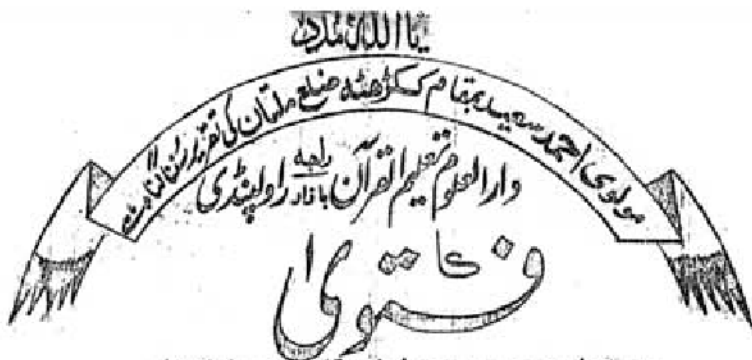 یا اللہ مدد
مولوی احمد سعید بمقام ککڑھٹہ ضلع ملتان کی تقریر
دارالعلوم تعلیم القرآن راجہ بازار راولپنڈی
کا فتویٰ